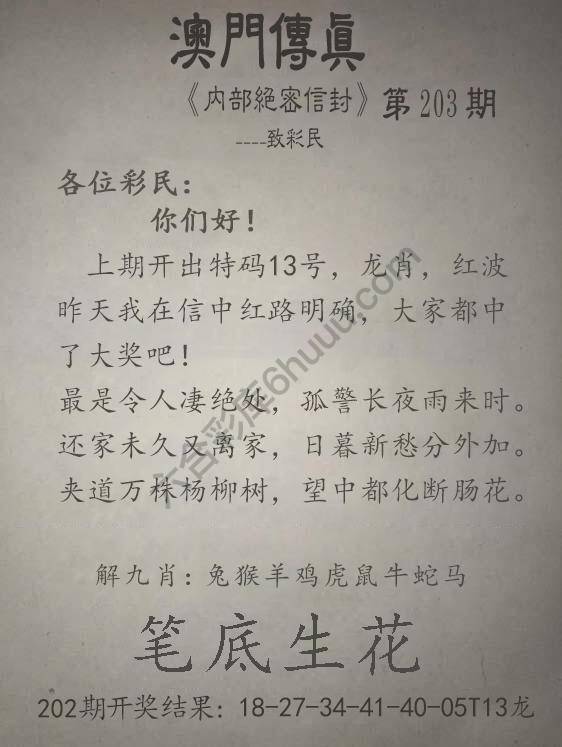 澳門傳眞
《内部絕密信封》第203期
----致彩民
各位彩民：
你们好！
上期开出特码13号，龙肖，红波
昨天我在信中红路明确，大家都中
了大奖吧！
最是令人凄绝处，孤警长夜雨来时。
还家未久又离家，日暮新愁分外加。
夹道万株杨柳树，望中都化断肠花。
六合彩库6huuu.com
解九肖：兔猴羊鸡虎鼠牛蛇马
笔底生花
202期开奖结果：18-27-34-41-40-05T13龙